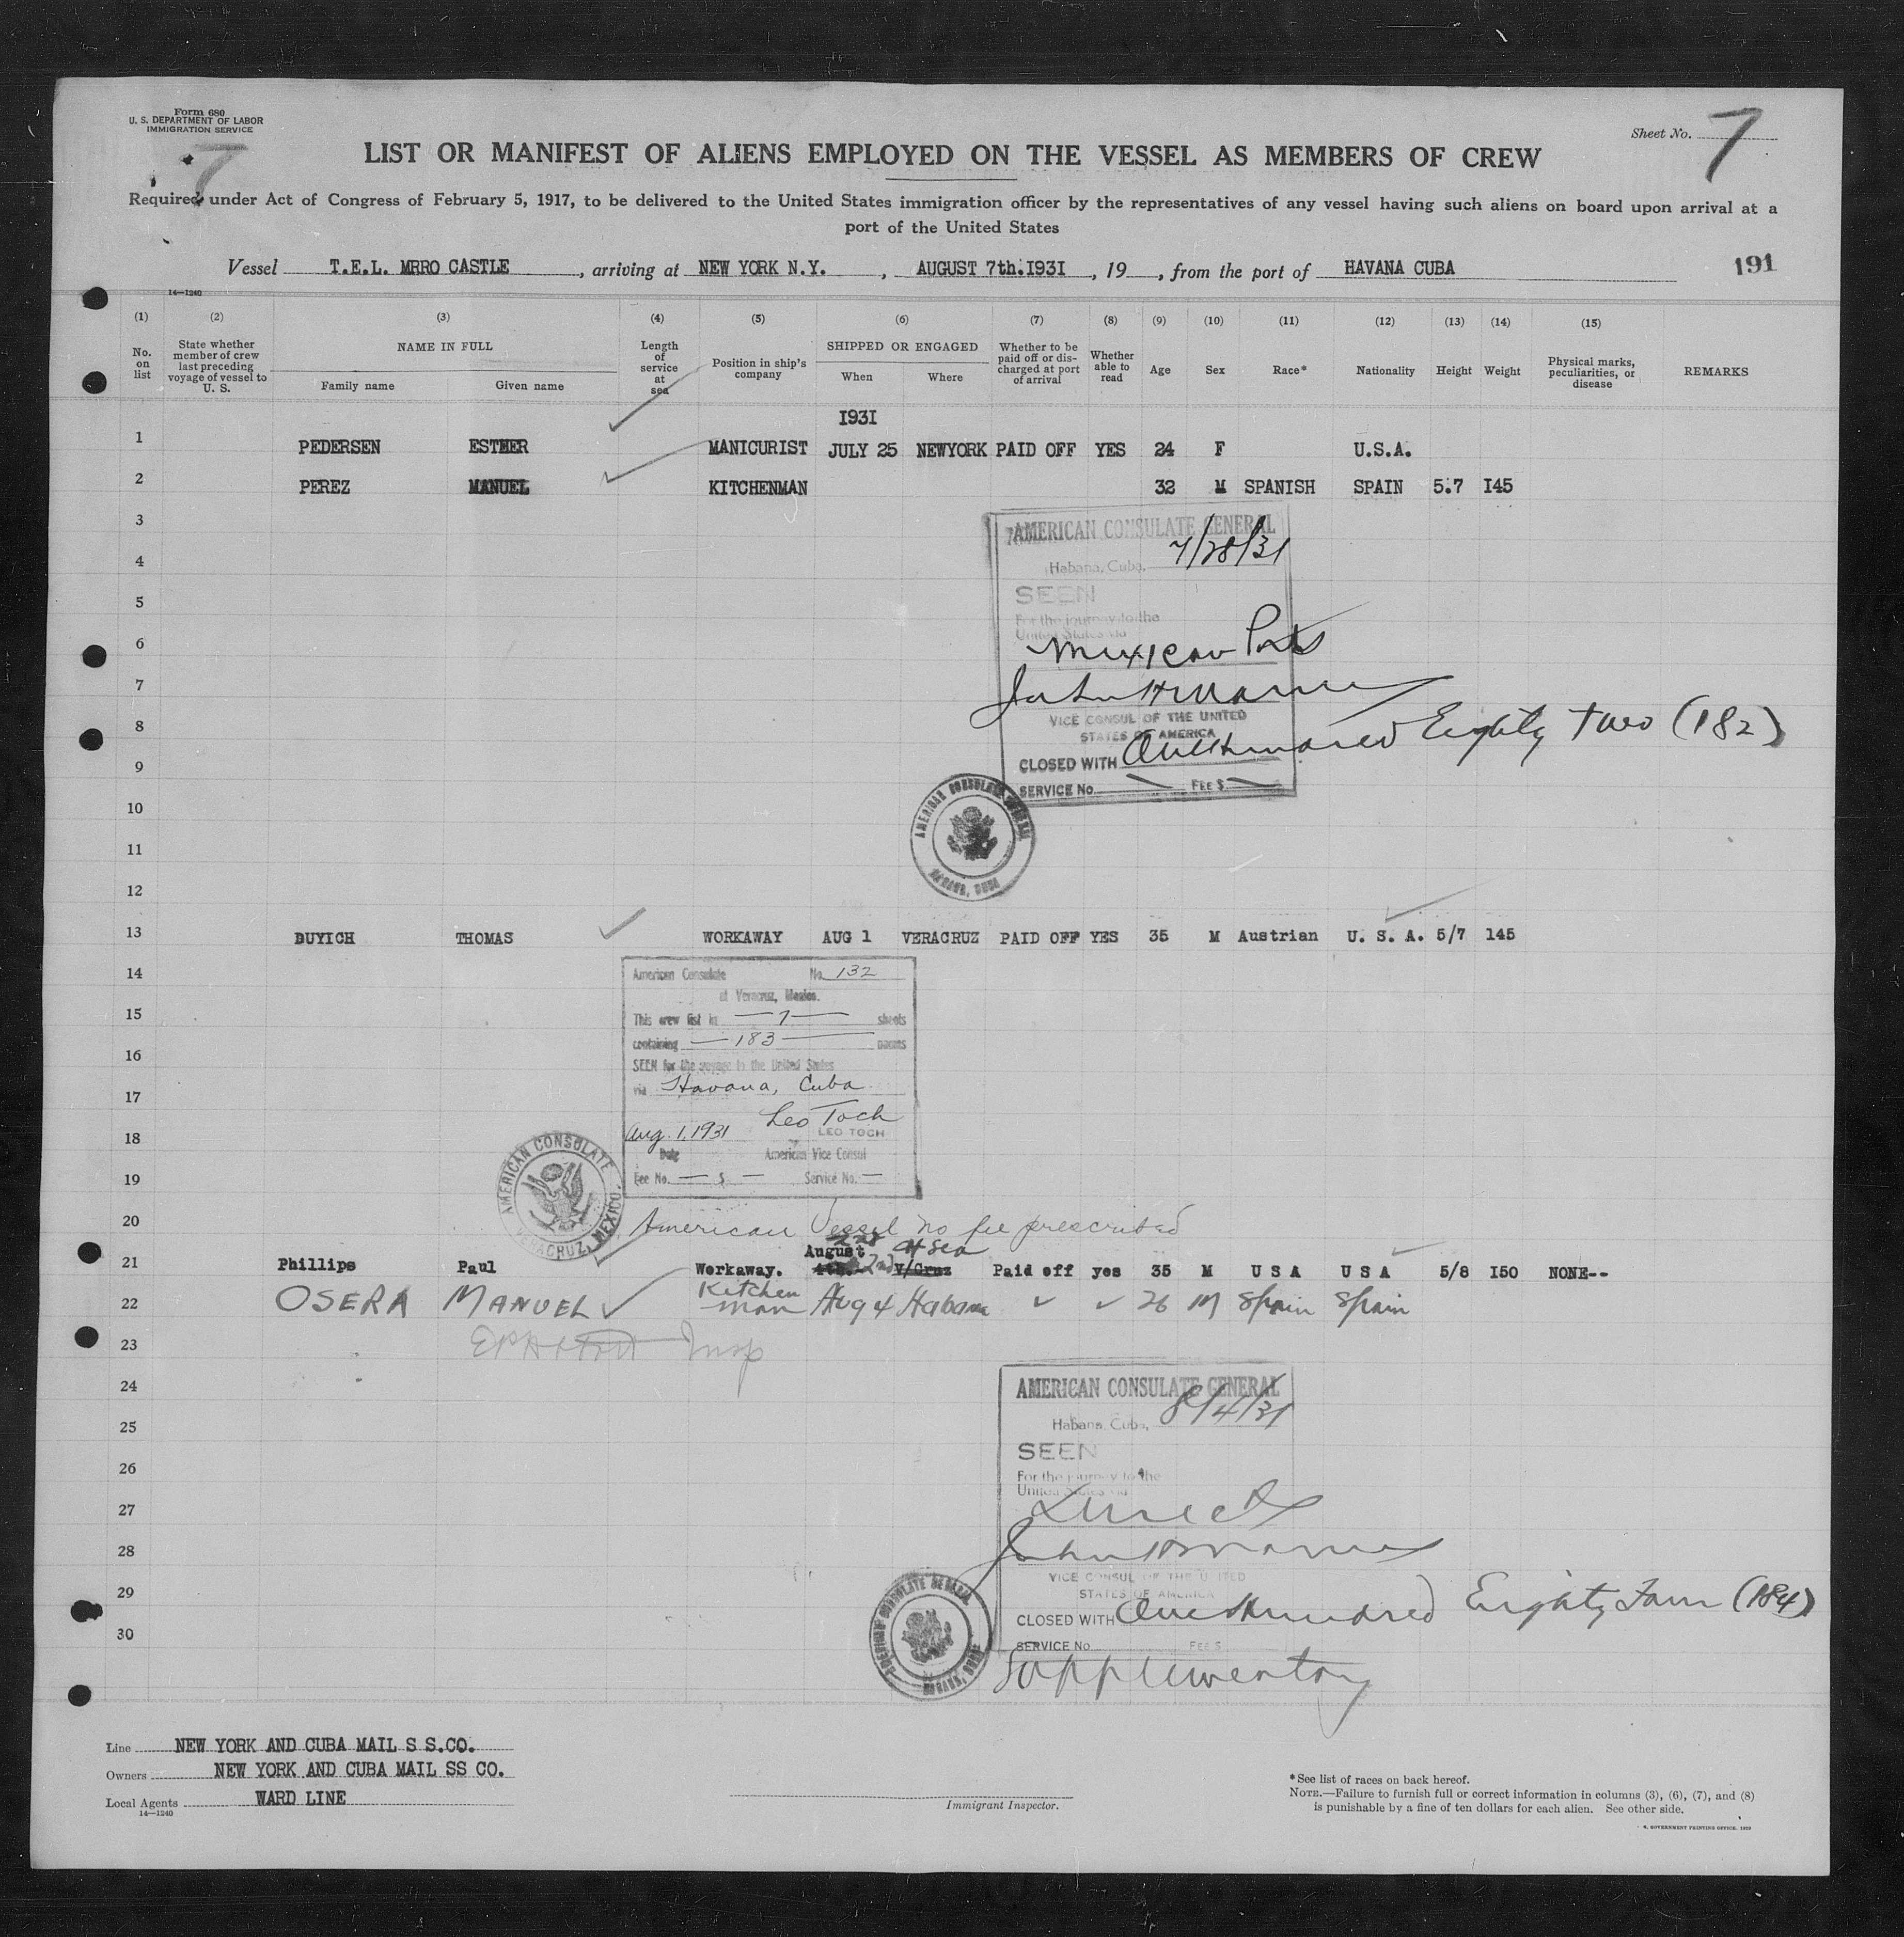 Form 680
U. S. DEPARTMENT OF LABOR
IMMIGRATION SERVICE
7
Sheet No. 7
LIST OR MANIFEST OF ALIENS EMPLOYED ON THE VESSEL AS MEMBERS OF CREW
Required under Act of Congress of February 5, 1917, to be delivered to the United States immigration officer by the representatives of any vessel having such aliens on board upon arrival at a
port of the United States
Vessel T.E.L. MRRO CASTLE, arriving at NEW YORK N.Y., AUGUST 7th.1931, 19, from the port of HAVANA CUBA
191
14—1240
(1) (2) (3) (4) (5) (6) (7) (8) (9) (10) (11) (12) (13) (14) (15)
No. on list
State whether member of crew last preceding voyage of vessel to U. S.
NAME IN FULL
Family name
Given name
Length of service at sea
Position in ship's company
SHIPPED OR ENGAGED
When
Where
Whether to be paid off or discharged at port of arrival
Whether able to read
Age
Sex
Race*
Nationality
Height
Weight
Physical marks, peculiarities, or disease
REMARKS
1931
1 PEDERSEN ESTHER MANICURIST JULY 25 NEWYORK PAID OFF YES 24 F U.S.A.
2 PEREZ MANUEL KITCHENMAN 32 M SPANISH SPAIN 5.7 145
3
AMERICAN CONSULATE GENERAL
4
Habana, Cuba, 7/28/31
5
SEEN
For the journey to the
United States via
6
Mexican Ports
7
VICE CONSUL OF THE UNITED
8
STATES OF AMERICA
9
CLOSED WITH One Hundred Eighty Two (182)
SERVICE No. FEE $
10
AMERICAN CONSULATE GENERAL
HABANA, CUBA
11
12
13 BUYICH THOMAS WORKAWAY AUG 1 VERACRUZ PAID OFF YES 35 M Austrian U. S. A. 5/7 145
14
American Consulate No. 132
at Veracruz, Mexico.
15
This crew list in 7 sheets
containing 183 names
16
SEEN for the voyage to the United States
via Havana, Cuba
17
18
Leo Toch
Aug. 1, 1931 LEO TOCH
Date American Vice Consul
19
Fee No. — $ — Service No. —
AMERICAN CONSULATE
VERACRUZ, MEXICO.
20
American Vessel no fee prescribed
August At Sea
21 Phillips Paul Workaway. 4th. 2nd V/Cruz Paid off yes 35 M U S A U S A 5/8 150 NONE--
22 OSERA MANUEL Kitchen man Aug 4 Habana 26 M Spain Spain
23
Insp
24
AMERICAN CONSULATE GENERAL
25
Habana, Cuba, 8/4/31
26
SEEN
For the journey to the
United States via
27
Direct
28
VICE CONSUL OF THE UNITED
29
STATES OF AMERICA
CLOSED WITH One Hundred Eighty Four (184)
30
SERVICE No. FEE $
Supplementary
AMERICAN CONSULATE GENERAL
HABANA, CUBA
Line NEW YORK AND CUBA MAIL S S.CO.
Owners NEW YORK AND CUBA MAIL SS CO.
Local Agents WARD LINE
14—1240
Immigrant Inspector.
*See list of races on back hereof.
NOTE.—Failure to furnish full or correct information in columns (3), (6), (7), and (8)
is punishable by a fine of ten dollars for each alien. See other side.